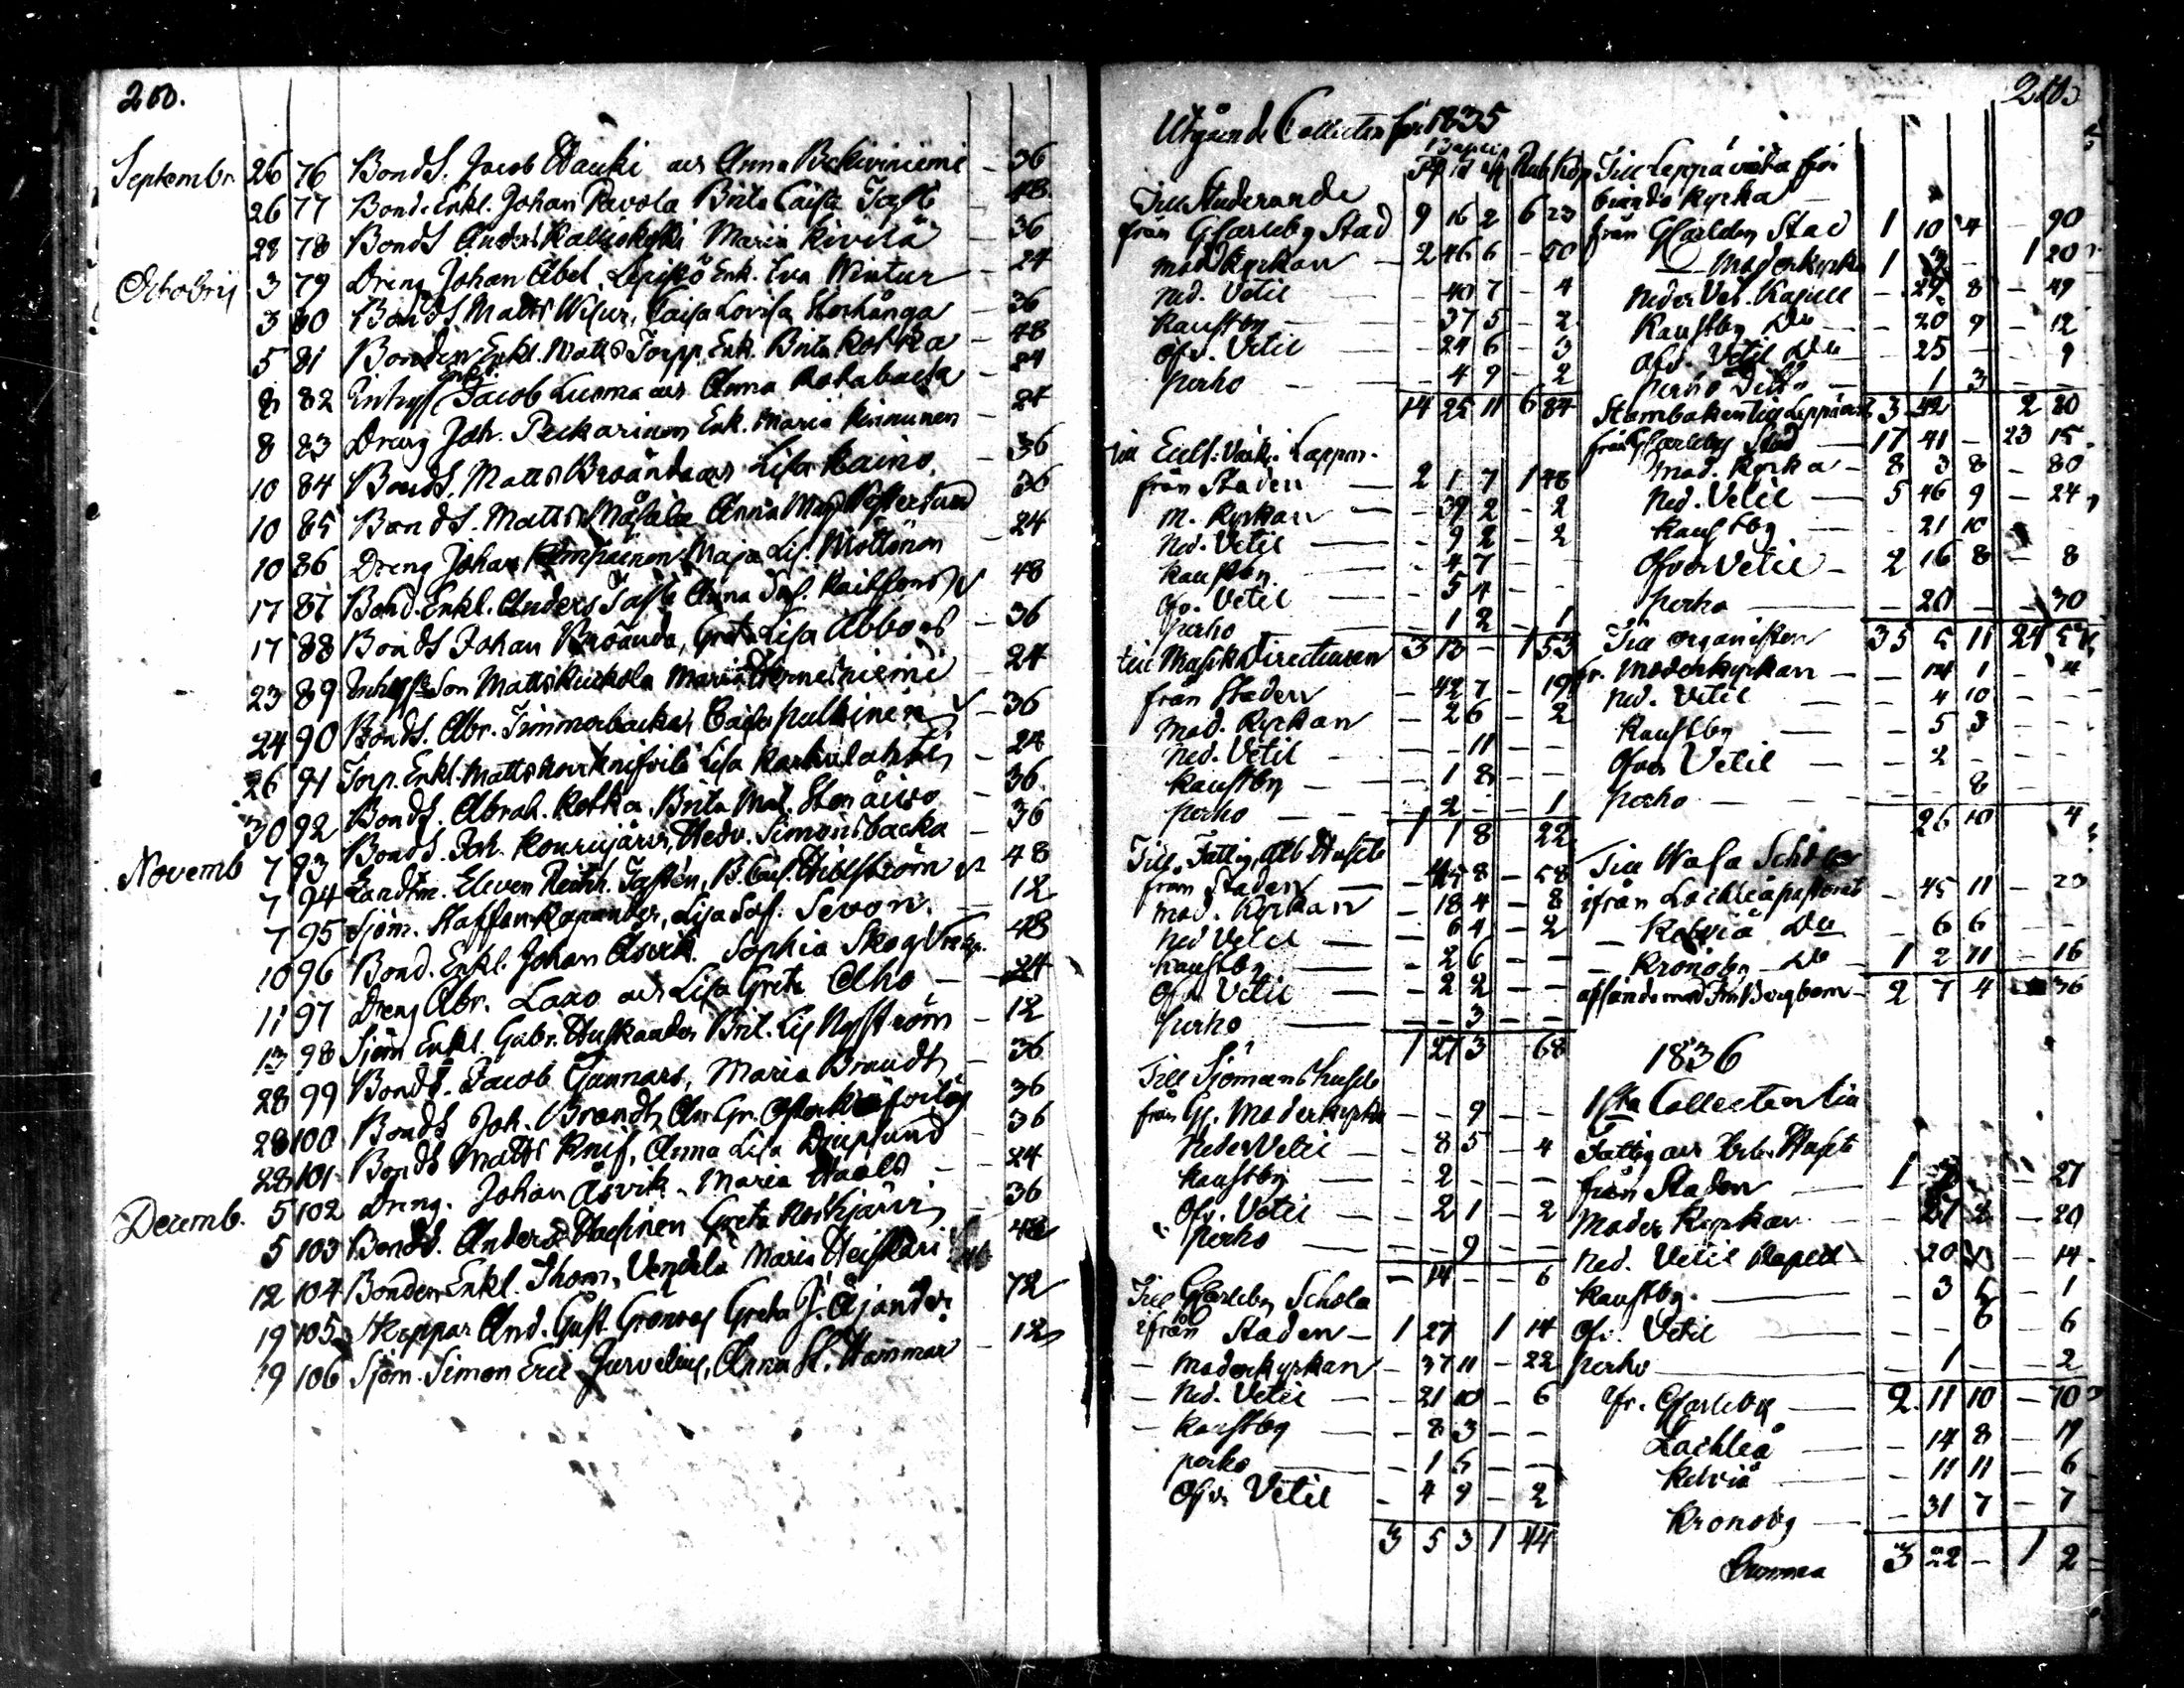 Septembr. 26 76 Bonds. Jacob Hauki och Anna Päkiviniemi – 36
26 77 Bond. Enkl. Johan Pavola Brita Caisa Jossi – 48
28 78 Bonds Anders Kalliokoski Maria Kivilä – 36
Octobris 3 79 Dreng Johan Abel. Lepistö Enk. Eva Wintur – 24
3 80 Bonds Matts Wisur, Caisa Lovisa Storhånga – 36
5 81 Bonden Enkl. Matts Torpp. Enk. Brita Kotka – 48
8 82 Inhys. Enkl. Jacob Luoma och Anna – 24
8 83 Dreng Joh. Peckarinen Enk. Maria Kinnunen – 24
10 84 Bonds. Matts Broända och Lisa Kaino – 36
10 85 Bonds. Matts Måsala Anna Maj. Vestersund 36
10 86 Dreng Johan Kempainen Maja Lis. Möttönen 24
17 87 Bond. Enkl. Anders Anna 48
17 88 Bonds Johan Broanda, Greta Lisa Abbors – 36
23 89 Inhys Son Matts Kuckola Maria Herneisniemi 24
24 90 Bonds. Abr. Timmerbacka, Caisa Pulkinen – 36
26 91 Torp. Enkl. Matts Lisa Karhulahti 24
30 92 Bonds. Abrah. Kotka, Brita Mal. Storåivo 36
Novemb 7 93 Bonds. Joh. Kourujärvi, Hedv. Simonsbacka 36
7 94 Landtm. Eleven Reinh. B. Caisa 48
7 95 Sjöm. Staffan Kapander, Lisa Sof. Sevon – 12
10 96 Bond. Enkl. Johan Åsvik. Sophia 48
11 97 Dreng Abr. Laxo och Lisa Greta Alho – 24
13 98 Sjöm Enkl. Gabr. Huskander Brit. Lis Nyström – 12
28 99 Bonds. Jacob Gunnars, Maria Brandt 36
28 100 Bonds Joh. Brandt, An. Gr. 36
28 101 Bonds Matts Knif, Anna Lisa Djupsund 36
Decemb. 5 102 Dreng. Johan Åsvik. Maria Haals – 24
5 103 Bonds. Anders Hassinen Greta Koskijärvi 36
12 104 Bonden Enkl. Thom. Vendelä Maria Heiskari 48
19 105 Skeppar And. Gust. Granroos Greta J. Ajander 72
19 106 Sjöm. Simon Eric Jurvelius, Anna St. Hammar – 12
Utgående Collecter för 1835
Till Studerande
från Gcarleby Stad 9 16 2 6 23
mod Kyrkan – 2 46 6 – 50
Ned. Vetil – 40 7 – 4
Kaustby – 37 5 – 2
Öfv. Vetil – 24 6 – 3
Perho – 4 9 – 2
14 25 11 6 84
till Eccl. Verk i Lappm.
från Staden – 2 1 7 1 48
m. Kyrkan – 39 2 – 2
Ned. Vetil – 9 2 – 2
Kaustby – 4 7 – –
Öfv. Vetil – 5 4 – –
Perho – 1 2 – 1
3 13 – 1 53
till Musik Directeuren
från Staden – 42 7 – 19
mod. Kyrkan – 2 6 – 2
Ned. Vetil – – 11 – –
Kaustby – 1 8 – –
Perho – 2 – – 1
1 1 8 22
Till Fattig Arb. Huset
från Staden – 45 8 – 58
Mod. Kyrkan – 18 4 – 8
Ned Vetil – 6 4 – 2
Kaustby – 2 6 – –
Öfv. Vetil – 2 2 – –
Perho – – 3 – –
1 27 3 68
Till Sjömanshuset
från Gc. Moderkyrka – – 9 – –
Neder Vetil – 8 5 – 4
Kaustby – 2 – – –
Öfv. Vetil – 2 1 – 2
Perho – – 9 – –
– 14 – – 6
Till Gcarleby Schola
ifrån Staden – 1 27 1 14
– Moderkyrkan – 37 11 – 22
– Ned. Vetil – 21 10 – 6
– Kaustby – 8 3 – –
Perho – 1 6 – –
Öfv. Vetil – 4 9 – 2
3 5 3 1 44
Till Leppävirta för
brända Kyrka –
från Gcarleby Stad 1 10 4 – 90
– Moderkyrka 1 – 1 20
Neder Vet. Kapell – 29 8 – 49
Kaustby Do – 20 9 – 12
Öfv. Vetil Do – 25 – – 9
Perho Ditto – 1 3 – –
3 42 2 80
Stamboken till Leppävirta
från Gcarleby Stad – 17 41 – 23 15
Mod. Kyrka – 8 3 8 – 80
Ned. Vetil – 5 46 9 – 24
Kaustby – 21 10
Öfver Vetil – 2 16 8 – 8
Perho – 20 – – 30
35 5 11 24 57
Till organisten
fr. Moderkyrkan – 14 1 – 4
Ned. Vetil – 4 10 – –
Kaustby – 5 3 – –
Öfver Vetil – 2 – – –
Perho – – 8 – –
26 10 4
Till Wasa Schola
ifrån Lochteå pastorat – 45 11 – 20
– Kelviå Do – 6 6 – –
– Kronoby – Do – 1 2 11 – 16
afsände med Bergbom – 2 7 4 36
1836
1sta Collecten till
Fattig och Arb. Huset
från Staden – 1 – 27
Moder Kyrkan – 27 2 – 20
Ned. Vetil Kapell 20 – 14
Kaustby – 3 5 – 1
Öfv. Vetil – – 6 – 6
Perho – 1 – – 2
fr. Gcarleby – 2 11 10 – 70
Lochteå – 14 8 – 19
Kelviå – 11 11 – 6
Kronoby – 31 7 – 7
Summa 3 22 – 1 2